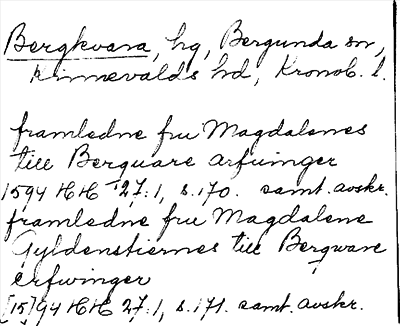 Bergkvara, hg, Bergunda sn,
Kinnevalds hd, Kronob. l.
framledne fru Magdalenes
till Berquare arfuinger
1594 HH 27:1, s.170. samt. avskr.
framledne fru Magdalene
Gyldenstiernes till Bergware
erfwinger
[15]94 HH 27:1, s.171. samt. avskr.